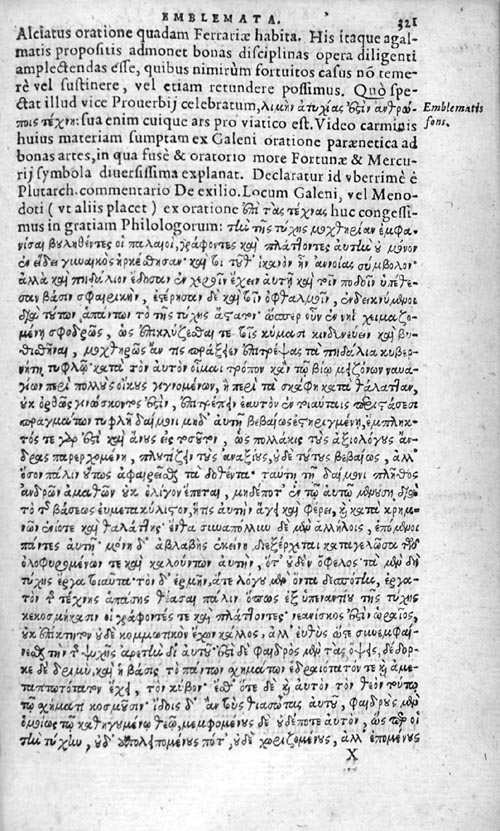 EMBLEMATA. 321
Alciatus oratione quadam Ferrariæ habita. His itaque agal-
matis propositis admonet bonas disciplinas opera diligenti
amplectendas esse, quibus nimirùm fortuitos casus nō teme-
rè vel sustinere, vel etiam retundere possimus. Quò spe-
ctat illud vice Prouerbij celebratum, λιμὴν ἀτυχίας ἐστὶν ἀνθρώ-
ποις τέχνη: sua enim cuique ars pro viatico est. Video carminis
huius materiam sumptam ex Galeni oratione parænetica ad
bonas artes, in qua fusè & oratorio more Fortunæ & Mercu-
rij symbola diuersissima explanat. Declaratur id vberrimè è
Plutarch. commentario De exilio. Locum Galeni, vel Meno-
doti (vt aliis placet) ex oratione ἐπὶ τὰς τέχνας huc congessi-
mus in gratiam Philologorum: τὴν τῆς τύχης μοχθηρίαν ἐμφα-
νίσαι βυληθέντες οἱ παλαιοί, γράφοντες καὶ πλάττοντες αὐτὴν ὐ μόνον
ἐν εἴδει γυναικὸς ἠρκέσθησαν· καί τοι τῦθ' ἱκανὸν ἦν ἀνοίας σύμβολον·
ἀλλὰ καὶ πηδάλιον ἔδοσαν ἐν χεροῖν ἔχειν αὐτῇ καὶ τοῖν ποδοῖν ὑπέθε-
σαν βάσιν σφαιρικὴν, ἐστέρησαν δὲ καὶ τοῖν ὀφθαλμοῖν, ἐνδεικνύμενοι
διὰ τύτων ἁπάντων τὸ τῆς τύχης ἄστατον· ὥσπερ οὖν ἐν νηῒ χειμαζο-
μένῃ σφοδρῶς, ὡς ἐπικλύζεσθαί τε τοῖς κύμασι κινδυνεύειν καὶ βυ-
θισθῆναι, μοχθηρῶς ἄν τις πράξειεν ἐπιτρέψας τὰ πηδάλια κυβερ-
νήτῃ τυφλῷ· κατὰ τὸν αὐτὸν οἶμαι τρόπον κἀν τῷ βίῳ μειζόνων ναυα-
γίων περὶ πολλὺς οἴκυς γιγνομένων, ἢ περὶ τὰ σκάφη κατὰ θάλατταν,
ὐκ ὀρθῶς γινώσκοντός ἐστιν, ἐπιτρέπειν ἑαυτὸν ἐν τοιαύταις περιστάσεσι
πραγμάτων τυφλῇ δαίμονι μηδ' αὐτῇ βεβαίως ἐστηριγμένῃ, ἔμπληκ-
τός τε γάρ ἐστι καὶ ἄνυς εἰς τοσῦτον, ὡς πολλάκις τὺς ἀξιολόγυς ἄν-
δρας παρερχομένη, πλυτίζειν τὺς ἀναξίυς, ὐδὲ τύτυς βεβαίως, ἀλλ'
ὅσον πάλιν ὕτως ἀφαιρεῖσθαι τὰ δοθέντα· ταύτῃ τῇ δαίμονι πλῆθος
ἀνδρῶν ἀμαθῶν ὐκ ὀλίγον ἕπεται, μηδέποτ' ἐν τῷ αὐτῷ μενύσῃ διὰ
τὸ τῆς βάσεως εὐμετακύλιστον, ἥτις αὐτὴν ἄγει καὶ φέρει, κατὰ κρημ-
νῶν ἐνίοτε καὶ θαλάττης· ἔνθα συναπόλλυνται μὲν ἀλλήλοις, ἑπόμενοι
πάντες αὐτῇ· μόνη δ' ἀβλαβὴς ἐκείνη διεξέρχεται καταγελῶσα τῶν
ὀλοφυρομένων τε καὶ καλούντων αὐτὴν, ὅτ' ὐδὲν ὄφελος· τὰ μὲν δὴ
τύχης ἔργα τοιαῦτα· τὸν δ' ἑρμῆν, ἅτε λόγυ μὲν ὄντα δεσπότην, ἐργά-
την δὲ τέχνης ἁπάσης θέασαι πάλιν ὅπως ἐξ ὑπεναντίυ τῆς τύχης
κεκοσμήκασιν οἱ γράφοντές τε καὶ πλάττοντες· νεανίσκος ἐστὶν ὡραῖος,
ὐκ ἐπίκτητον ὐδὲ κομμωτικὸν ἔχων κάλλος, ἀλλ' εὐθὺς ὥστε συνεμφαί-
νεσθαι τὴν τῆς ψυχῆς ἀρετὴν δι' αὐτῦ· ἔστι δὲ φαιδρὸς μὲν τὰς ὄψεις, δέδορ-
κε δὲ δριμύ, καὶ ἡ βάσις τὸ πάντων σχημάτων ἑδραιότατόν τε καὶ ἀμε-
ταπτωτότατον ἔχει, τὸν κύβον· ἔσθ' ὅτε δὲ καὶ αὐτὸν τὸν θεὸν τύτῳ
τῷ σχήματι κοσμῦσιν· ἴδοις δ' ἂν τὺς θιασώτας αὐτῦ, φαιδρὺς μὲν
ὁμοίως τῷ καθηγυμένῳ θεῷ, μεμφομένυς δὲ ὐδέποτε αὐτὸν, ὥσπερ οἱ
τὴν τύχην, ὐδ' ἀπολειπομένυς πότ', ὐδὲ χωριζομένυς, ἀλλ' ἑπομένυς
X
Emblematis
fons.